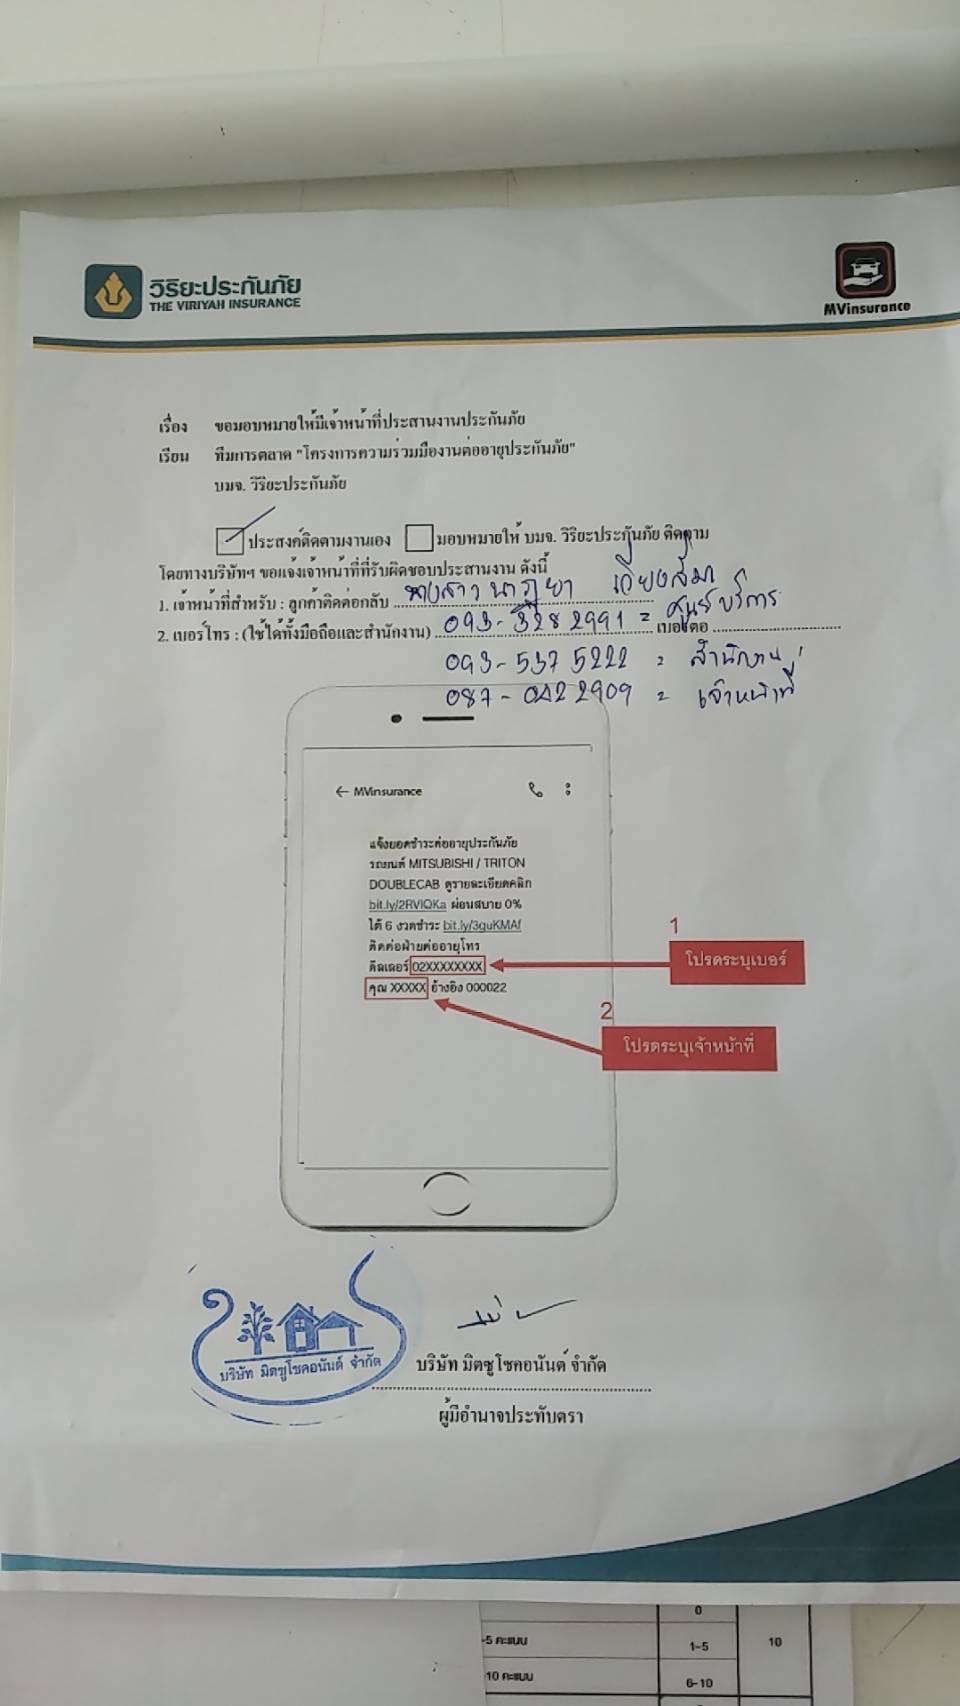 วิริยะประกันภัย
THE VIRIYAH INSURANCE
MVinsurance
เรื่อง ขอมอบหมายให้มีเจ้าหน้าที่ประสานงานประกันภัย
เรียน ทีมการตลาด "โครงการความร่วมมืองานต่ออายุประกันภัย"
บมจ. วิริยะประกันภัย
ประสงค์ติดตามงานเอง มอบหมายให้ บมจ. วิริยะประกันภัย ติดตาม
โดยทางบริษัทฯ ขอแจ้งเจ้าหน้าที่ที่รับผิดชอบประสานงาน ดังนี้
1. เจ้าหน้าที่สำหรับ : ลูกค้าติดต่อกลับ นางสาว
2. เบอร์โทร : (ใช้ได้ทั้งมือถือและสำนักงาน) 093-328 2991 = ศูนย์บริการ เบอร์ต่อ
093-537 5222 = สำนักงาน
087-042 2909 = เจ้าหน้าที่
← MVinsurance
แจ้งยอดชำระต่ออายุประกันภัย
รถยนต์ MITSUBISHI / TRITON
DOUBLECAB ดูรายละเอียดคลิก
bit.ly/2RVIQKa ผ่อนสบาย 0%
ได้ 6 งวดชำระ bit.ly/3guKMAf
ติดต่อฝ่ายต่ออายุโทร
ดีลเลอร์ 02XXXXXXXX
คุณ XXXXX อ้างอิง 000022
1
โปรดระบุเบอร์
2
โปรดระบุเจ้าหน้าที่
บริษัท มิตซูโชคอนันต์ จำกัด
บริษัท มิตซูโชคอนันต์ จำกัด
ผู้มีอำนาจประทับตรา
0
-5 คะแนน 1-5 10
10 คะแนน 6-10